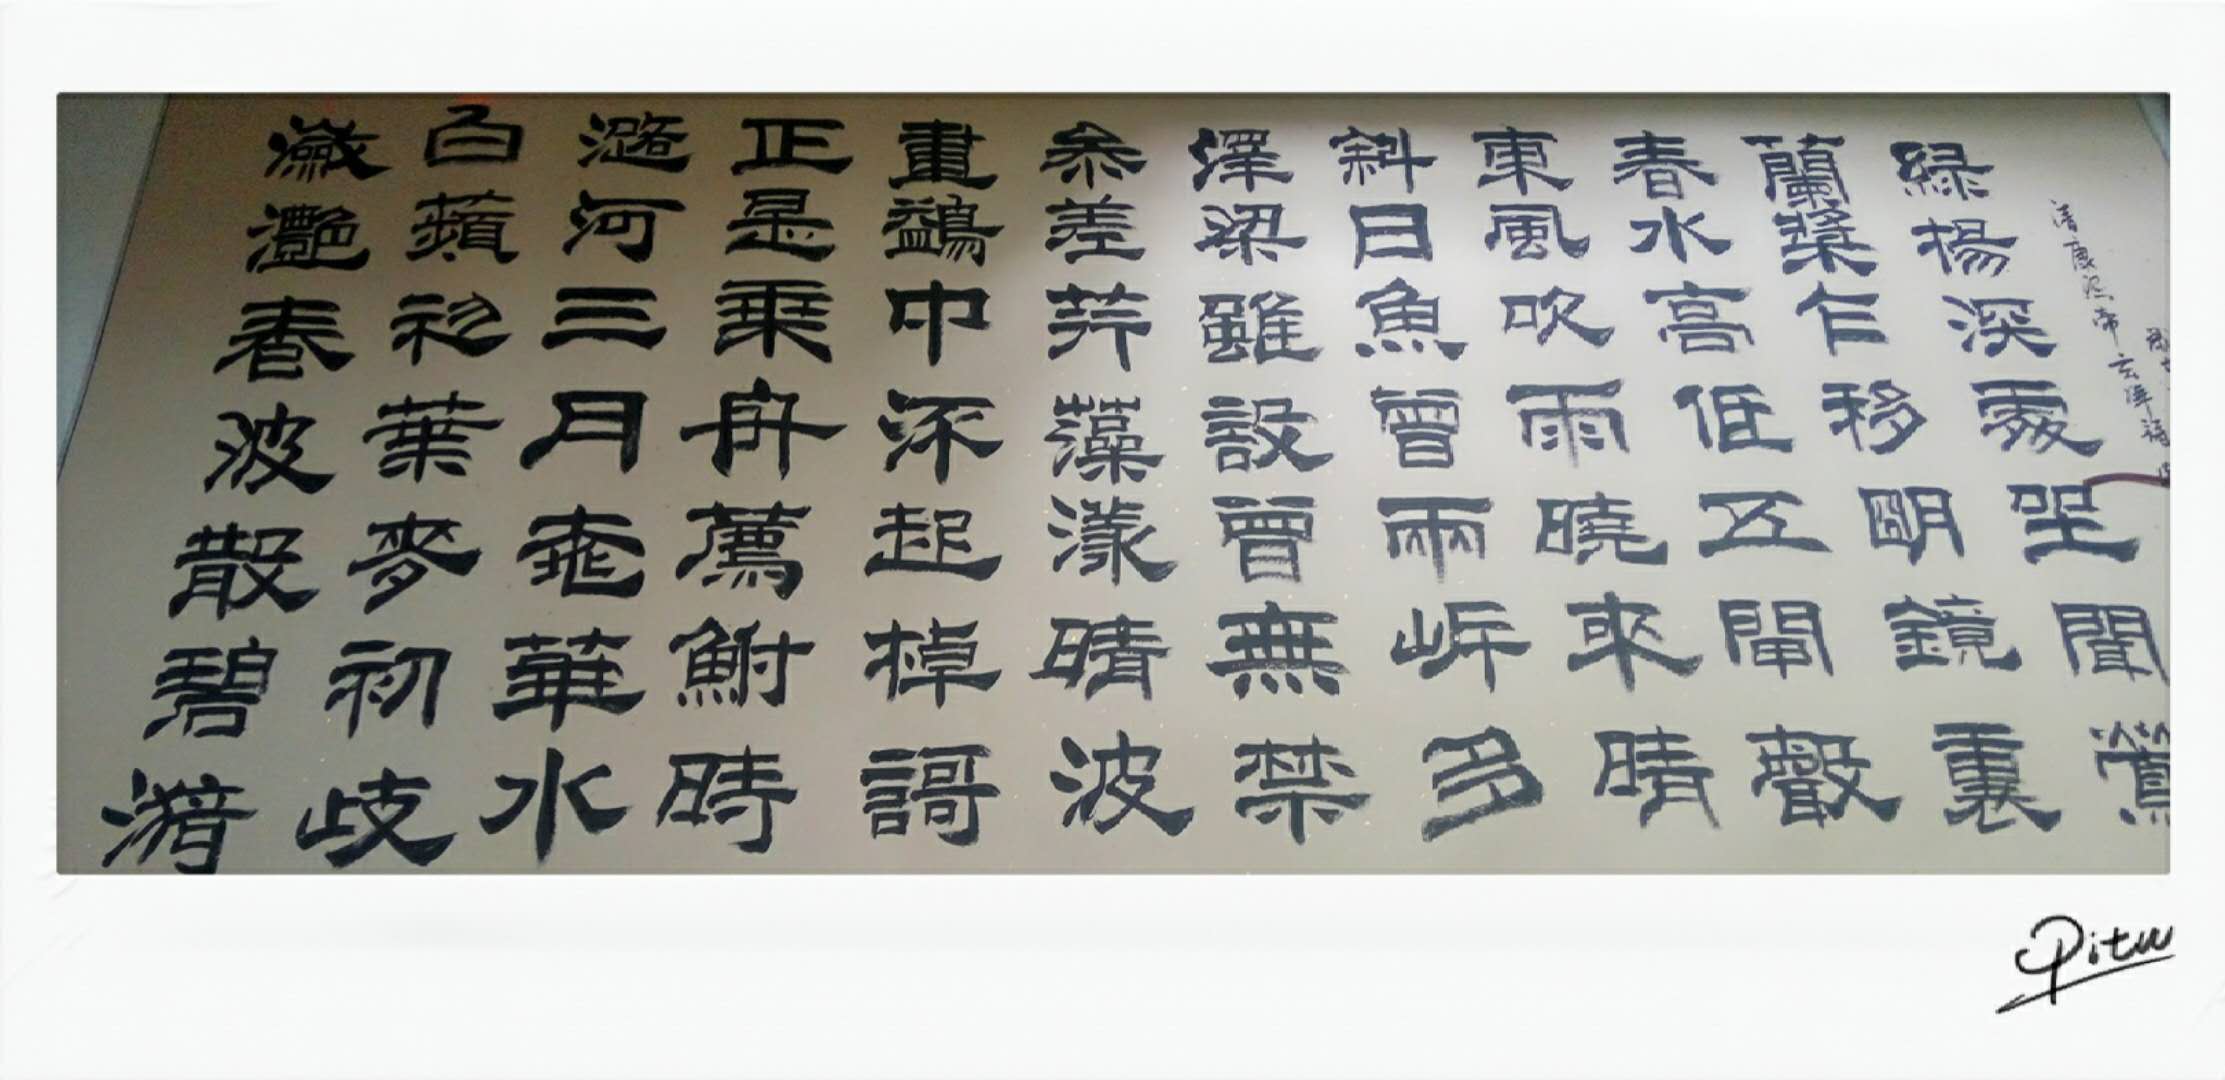 清康熙帝玄燁詩
綠楊深處坐聞鶯
蘭槳乍移朙鏡裏
春水高低五閘聲
東風吹雨曉來晴
斜日魚罾兩岸多
澤梁雖設曾無禁
參差荇藻漾晴波
畫鷁中流起棹謌
正是乘舟薦鮒時
潞河三月桃華水
白蘋初葉麥初岐
瀲灧春波散碧漪
Pitu